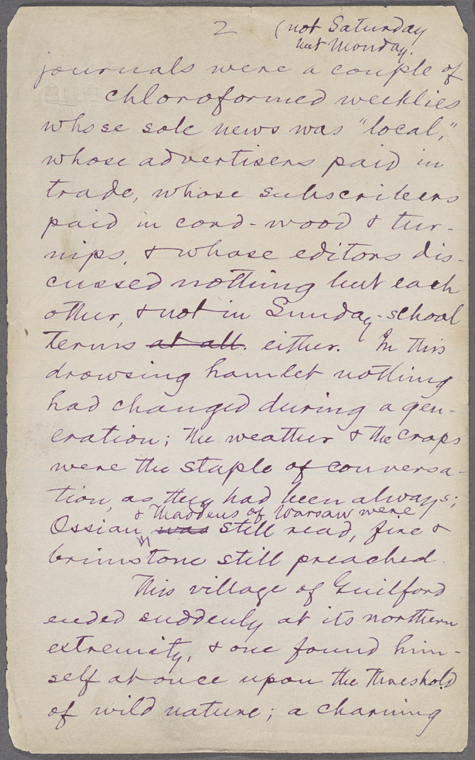 2
(not Saturday
but Monday.
journals were a couple of
chloroformed weeklies
whose sole news was "local,"
whose advertisers paid in
trade, whose subscribers
paid in cord-wood & tur-
nips, & whose editors dis-
cussed nothing but each
other, & not in Sunday-school
terms at all. either. In this
drowsing hamlet nothing
had changed during a gen-
eration; the weather & the crops
were the staple of conversa-
tion, as they had been always;
& Thaddeus of Warsaw were
Ossian was still read, fire &
brimstone still preached.
This village of Guilford
ended suddenly at its northern
extremity, & one found him-
self at once upon the threshold
of wild nature; a charming